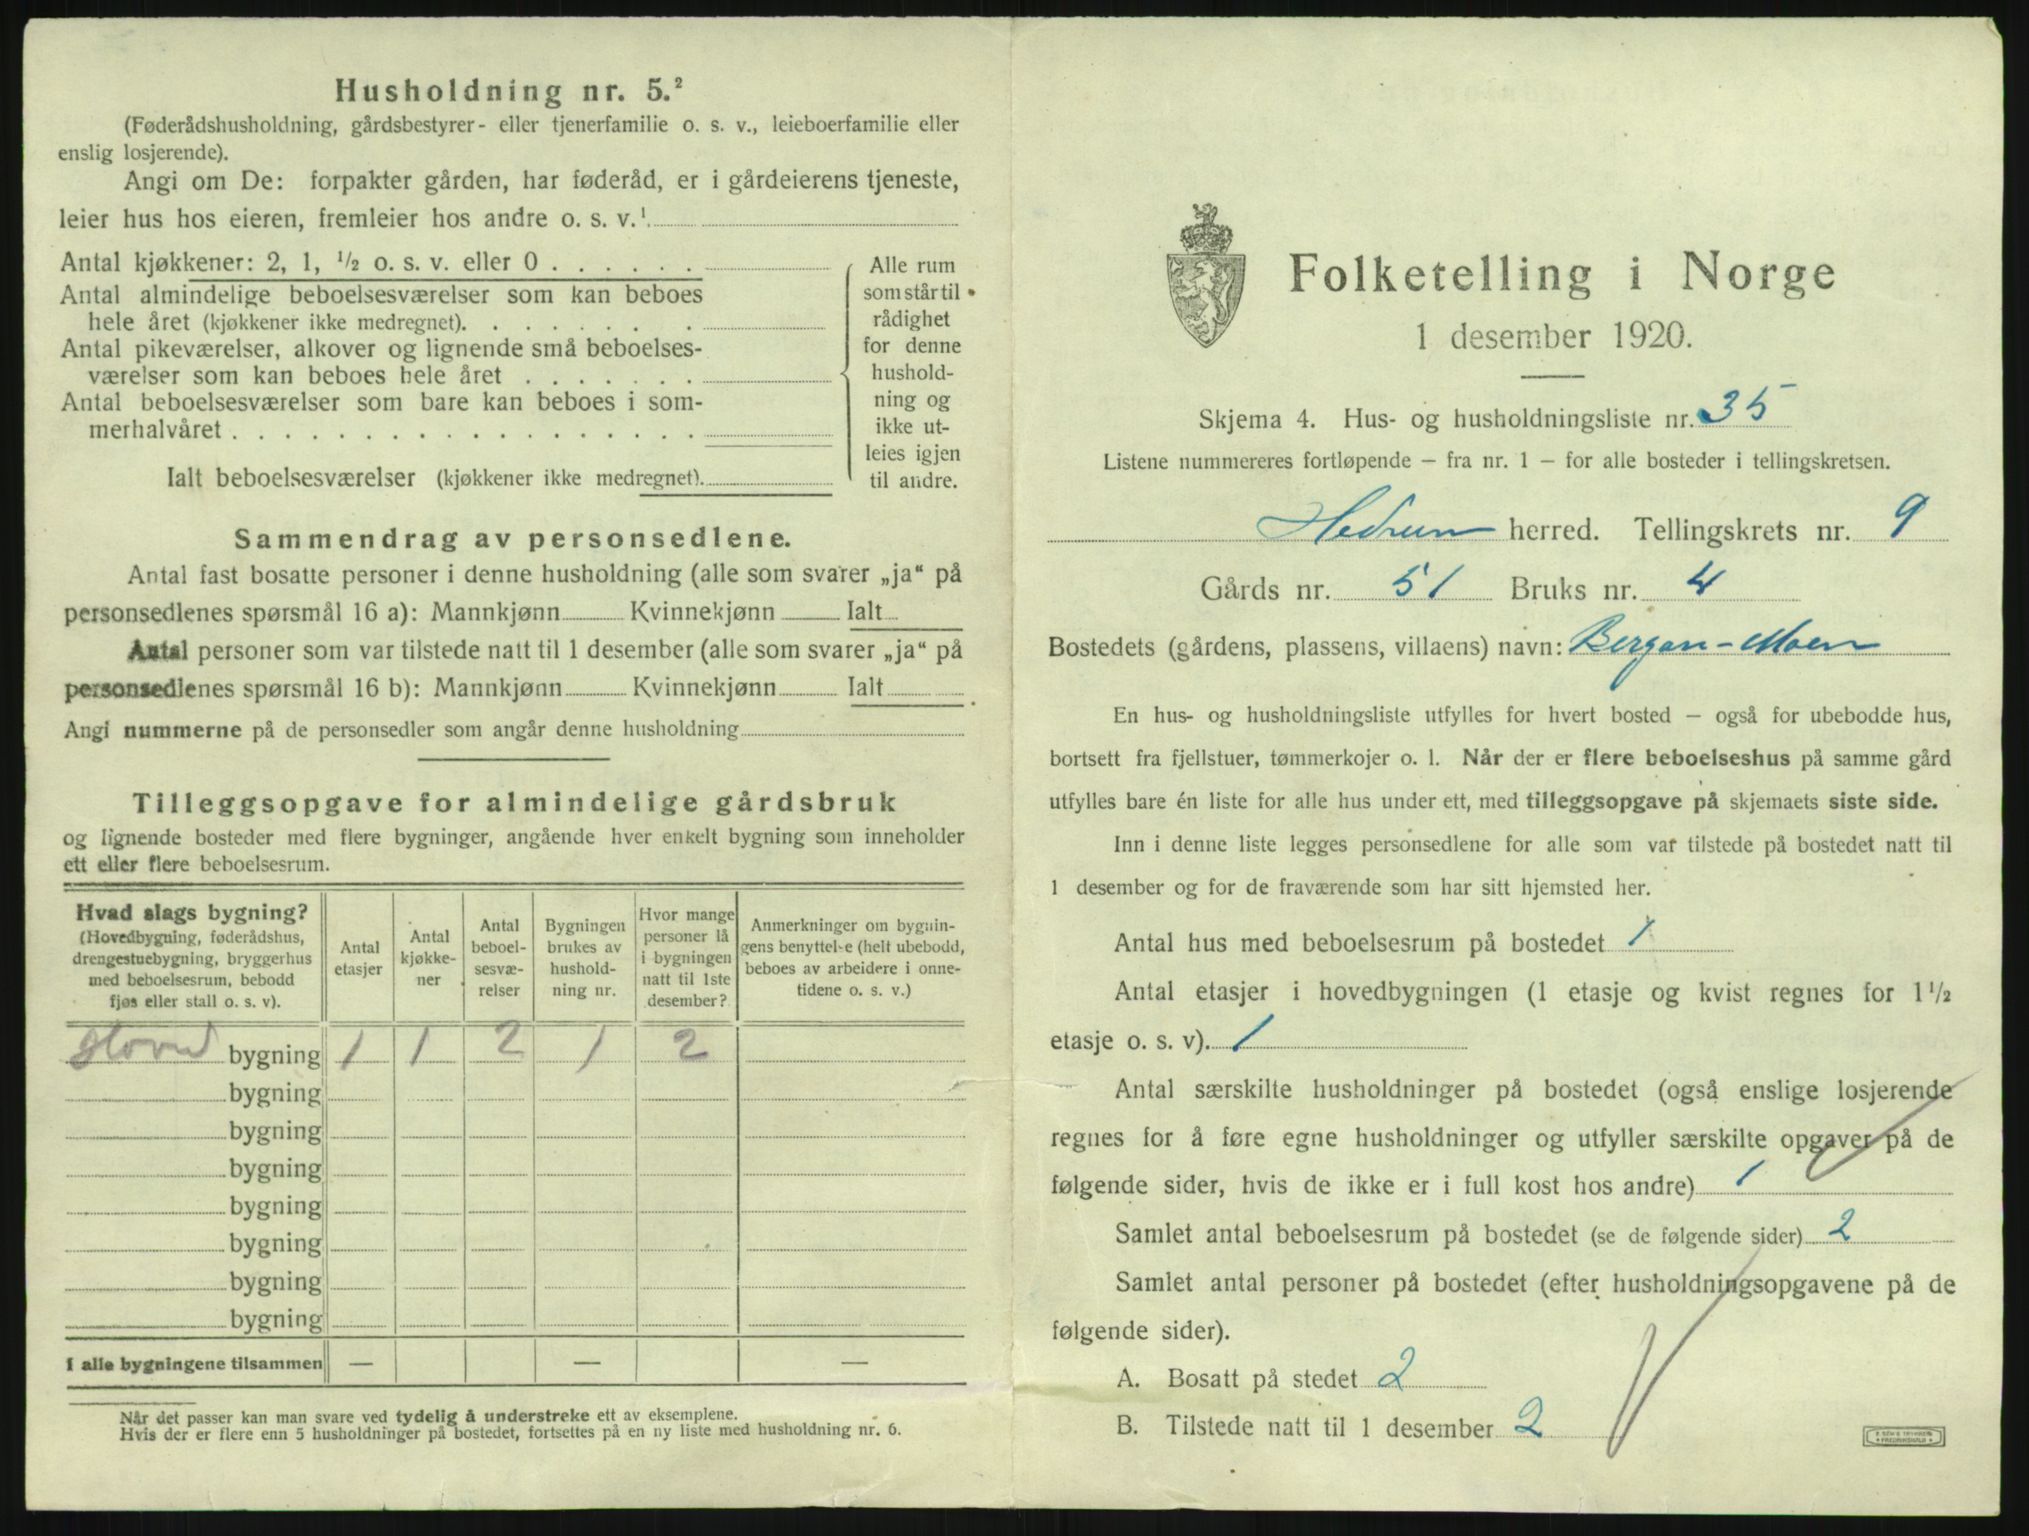 Husholdning nr. 5.²
(Føderådshusholdning, gårdsbestyrer- eller tjenerfamilie o. s. v., leieboerfamilie eller
enslig losjerende).
Angi om De: forpakter gården, har føderåd, er i gårdeierens tjeneste,
leier hus hos eieren, fremleier hos andre o. s. v.¹
Antal kjøkkener: 2, 1, ¹/₂ o. s. v. eller 0 . . . . . .
Antal almindelige beboelsesværelser som kan beboes
hele året (kjøkkener ikke medregnet). . . . . . . . .
Antal pikeværelser, alkover og lignende små beboelses-
værelser som kan beboes hele året . . . . . . .
Antal beboelsesværelser som bare kan beboes i som-
merhalvåret . . . . . . . . . . . . . . . . . .
Ialt beboelsesværelser (kjøkkener ikke medregnet).
Alle rum
som står til
rådighet
for denne
hushold-
ning og
ikke ut-
leies igjen
til andre.
Sammendrag av personsedlene.
Antal fast bosatte personer i denne husholdning (alle som svarer „ja“ på
personsedlenes spørsmål 16 a): Mannkjønn Kvinnekjønn Ialt
Antal personer som var tilstede natt til 1 desember (alle som svarer „ja“ på
personsedlenes spørsmål 16 b): Mannkjønn Kvinnekjønn Ialt
Angi nummerne på de personsedler som angår denne husholdning
Tilleggsopgave for almindelige gårdsbruk
og lignende bosteder med flere bygninger, angående hver enkelt bygning som inneholder
ett eller flere beboelsesrum.
Hvad slags bygning?
(Hovedbygning, føderådshus,
drengestuebygning, bryggerhus
med beboelsesrum, bebodd
fjøs eller stall o. s. v).
Antal
etasjer
Antal
kjøkke-
ner
Antal
beboel-
sesvæ-
relser
Bygningen
brukes av
hushold-
ning nr.
Hvor mange
personer lå
i bygningen
natt til 1ste
desember?
Anmerkninger om bygnin-
gens benyttelse (helt ubebodd,
beboes av arbeidere i onne-
tidene o. s. v.)
Hoved bygning 1 1 2 1 2
bygning
bygning
bygning
bygning
bygning
bygning
bygning
I alle bygningene tilsammen — — —
Når det passer kan man svare ved tydelig å understreke ett av eksemplene.
Hvis der er flere enn 5 husholdninger på bostedet, fortsettes på en ny liste med husholdning nr. 6.
Folketelling i Norge
1 desember 1920.
Skjema 4. Hus- og husholdningsliste nr. 35
Listene nummereres fortløpende – fra nr. 1 – for alle bosteder i tellingskretsen.
Hedrum herred. Tellingskrets nr. 9
Gårds nr. 51 Bruks nr. 4
Bostedets (gårdens, plassens, villaens) navn: Bergan-Moen
En hus- og husholdningsliste utfylles for hvert bosted – også for ubebodde hus,
bortsett fra fjellstuer, tømmerkojer o. l. Når der er flere beboelseshus på samme gård
utfylles bare én liste for alle hus under ett, med tilleggsopgave på skjemaets siste side.
Inn i denne liste legges personsedlene for alle som var tilstede på bostedet natt til
1 desember og for de fraværende som har sitt hjemsted her.
Antal hus med beboelsesrum på bostedet 1
Antal etasjer i hovedbygningen (1 etasje og kvist regnes for 1¹/₂
etasje o. s. v). 1
Antal særskilte husholdninger på bostedet (også enslige losjerende
regnes for å føre egne husholdninger og utfyller særskilte opgaver på de
følgende sider, hvis de ikke er i full kost hos andre) 1
Samlet antal beboelsesrum på bostedet (se de følgende sider) 2
Samlet antal personer på bostedet (efter husholdningsopgavene på de
følgende sider).
A. Bosatt på stedet 2
B. Tilstede natt til 1 desember 2